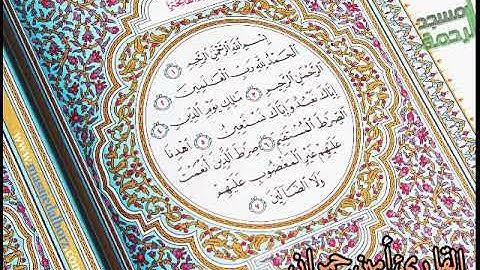 بِسْمِ اللَّهِ الرَّحْمَٰنِ الرَّحِيمِ ١
الْحَمْدُ لِلَّهِ رَبِّ الْعَالَمِينَ ٢
الرَّحْمَٰنِ الرَّحِيمِ ٣ مَالِكِ يَوْمِ الدِّينِ ٤
إِيَّاكَ نَعْبُدُ وَإِيَّاكَ نَسْتَعِينُ ٥ اهْدِنَا
الصِّرَاطَ الْمُسْتَقِيمَ ٦ صِرَاطَ الَّذِينَ أَنْعَمْتَ
عَلَيْهِمْ غَيْرِ الْمَغْضُوبِ عَلَيْهِمْ
وَلَا الضَّالِّينَ ٧
مسجد
الرحمة
القارئ أمين